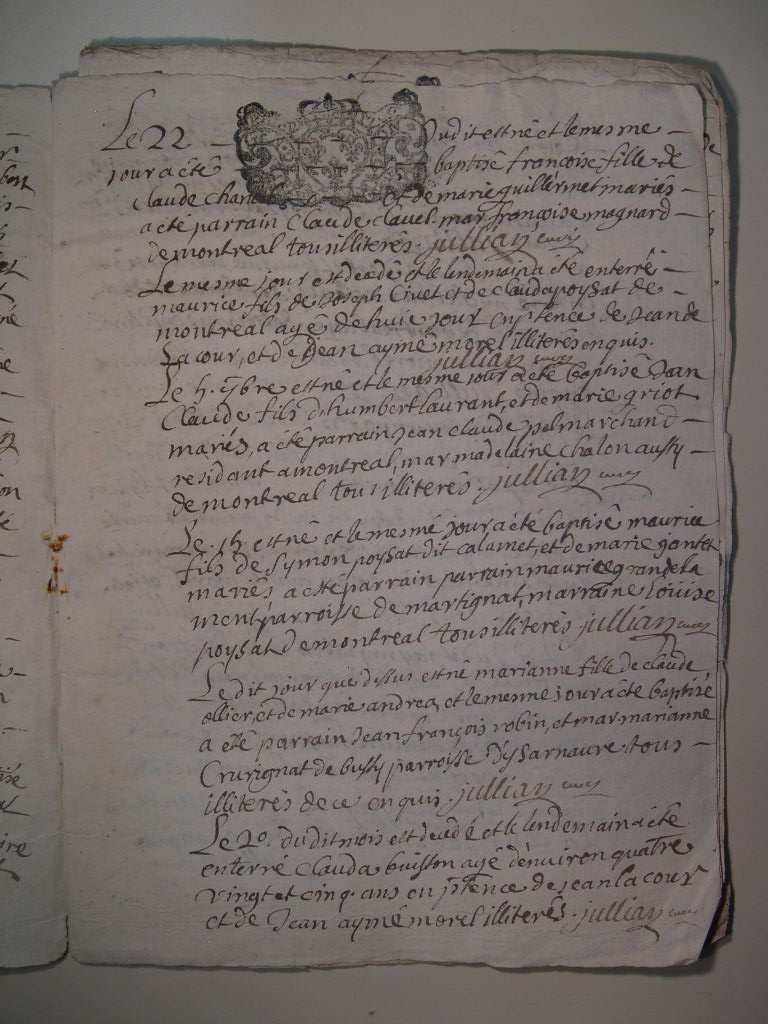 Le 22 dudit est né et le mesme
jour a été baptisé francoise fille de
Claude et de marie guillermet mariés
a été parrain Claude Clavel. mar. francoise magnard
de montreal tous illiterés. jullian curé
Le mesme jour est decédé et le lendemain a été enterré
maurice fils de Joseph Civet et de Clauda poysat de
montreal agé de huit jour en pntence de Jean de
La cour, et de Jean aymé morel illiterés enquis.
jullian curé
Le 5. 7bre est né et le mesme jour a été baptisé Jean
Claude fils d'humbert laurant, et de marie griot
mariés, a été parrain Jean Claude marchand
residant a montreal, mar madelaine Chalon aussy
de montreal tous illiterés. jullian curé
Le 15 est né et le mesme jour a été baptisé maurice
fils de Symon poysat dit calamet, et de marie
mariés a esté parrain parrain maurice grandcla
ment parroisse de martignat, marraine Louise
poysat de montreal tous illiterés jullian curé
Le dit jour que dessus est né marianne fille de claude
ollier, et de marie andrea, et le mesme jour a été baptisé
a été parrain Jean françois robin, et mar. marianne
Cruvignat de bussy parroisse d'ysarnavre tous
illiterés de ce enquis. jullian curé
Le 20. dudit mois est decedé et le lendemain a été
enterré Clauda buisson agé d'environ quatre
vingt et cinq ans en pntence de jean la cour
et de Jean aymé morel illiterés. jullian curé